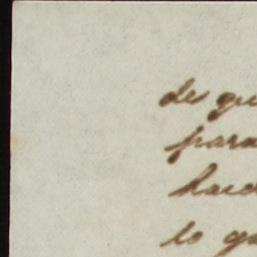 de qu
para
haid
lo qu